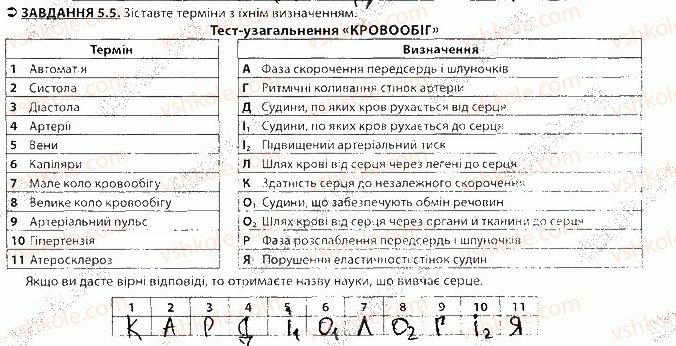 ⮊ ЗАВДАННЯ 5.5. Зіставте терміни з їхнім визначенням.
Тест-узагальнення «КРОВООБІГ»
Термін Визначення
1 Автоматія А Фаза скорочення передсердь і шлуночків
2 Систола Г Ритмічні коливання стінок артерій
3 Діастола Д Судини, по яких кров рухається від серця
4 Артерії І₁ Судини, по яких кров рухається до серця
5 Вени І₂ Підвищений артеріальний тиск
6 Капіляри Л Шлях крові від серця через легені до серця
7 Мале коло кровообігу К Здатність серця до незалежного скорочення
8 Велике коло кровообігу О₁ Судини, що забезпечують обмін речовин
9 Артеріальний пульс О₂ Шлях крові від серця через органи й тканини до серця
10 Гіпертензія Р Фаза розслаблення передсердь і шлуночків
11 Атеросклероз Я Порушення еластичності стінок судин
Якщо ви дасте вірні відповіді, то отримаєте назву науки, що вивчає серце.
1 2 3 4 5 6 7 8 9 10 11
К А Р Д І₁ О₁ Л О₂ Г І₂ Я
vshkole.com